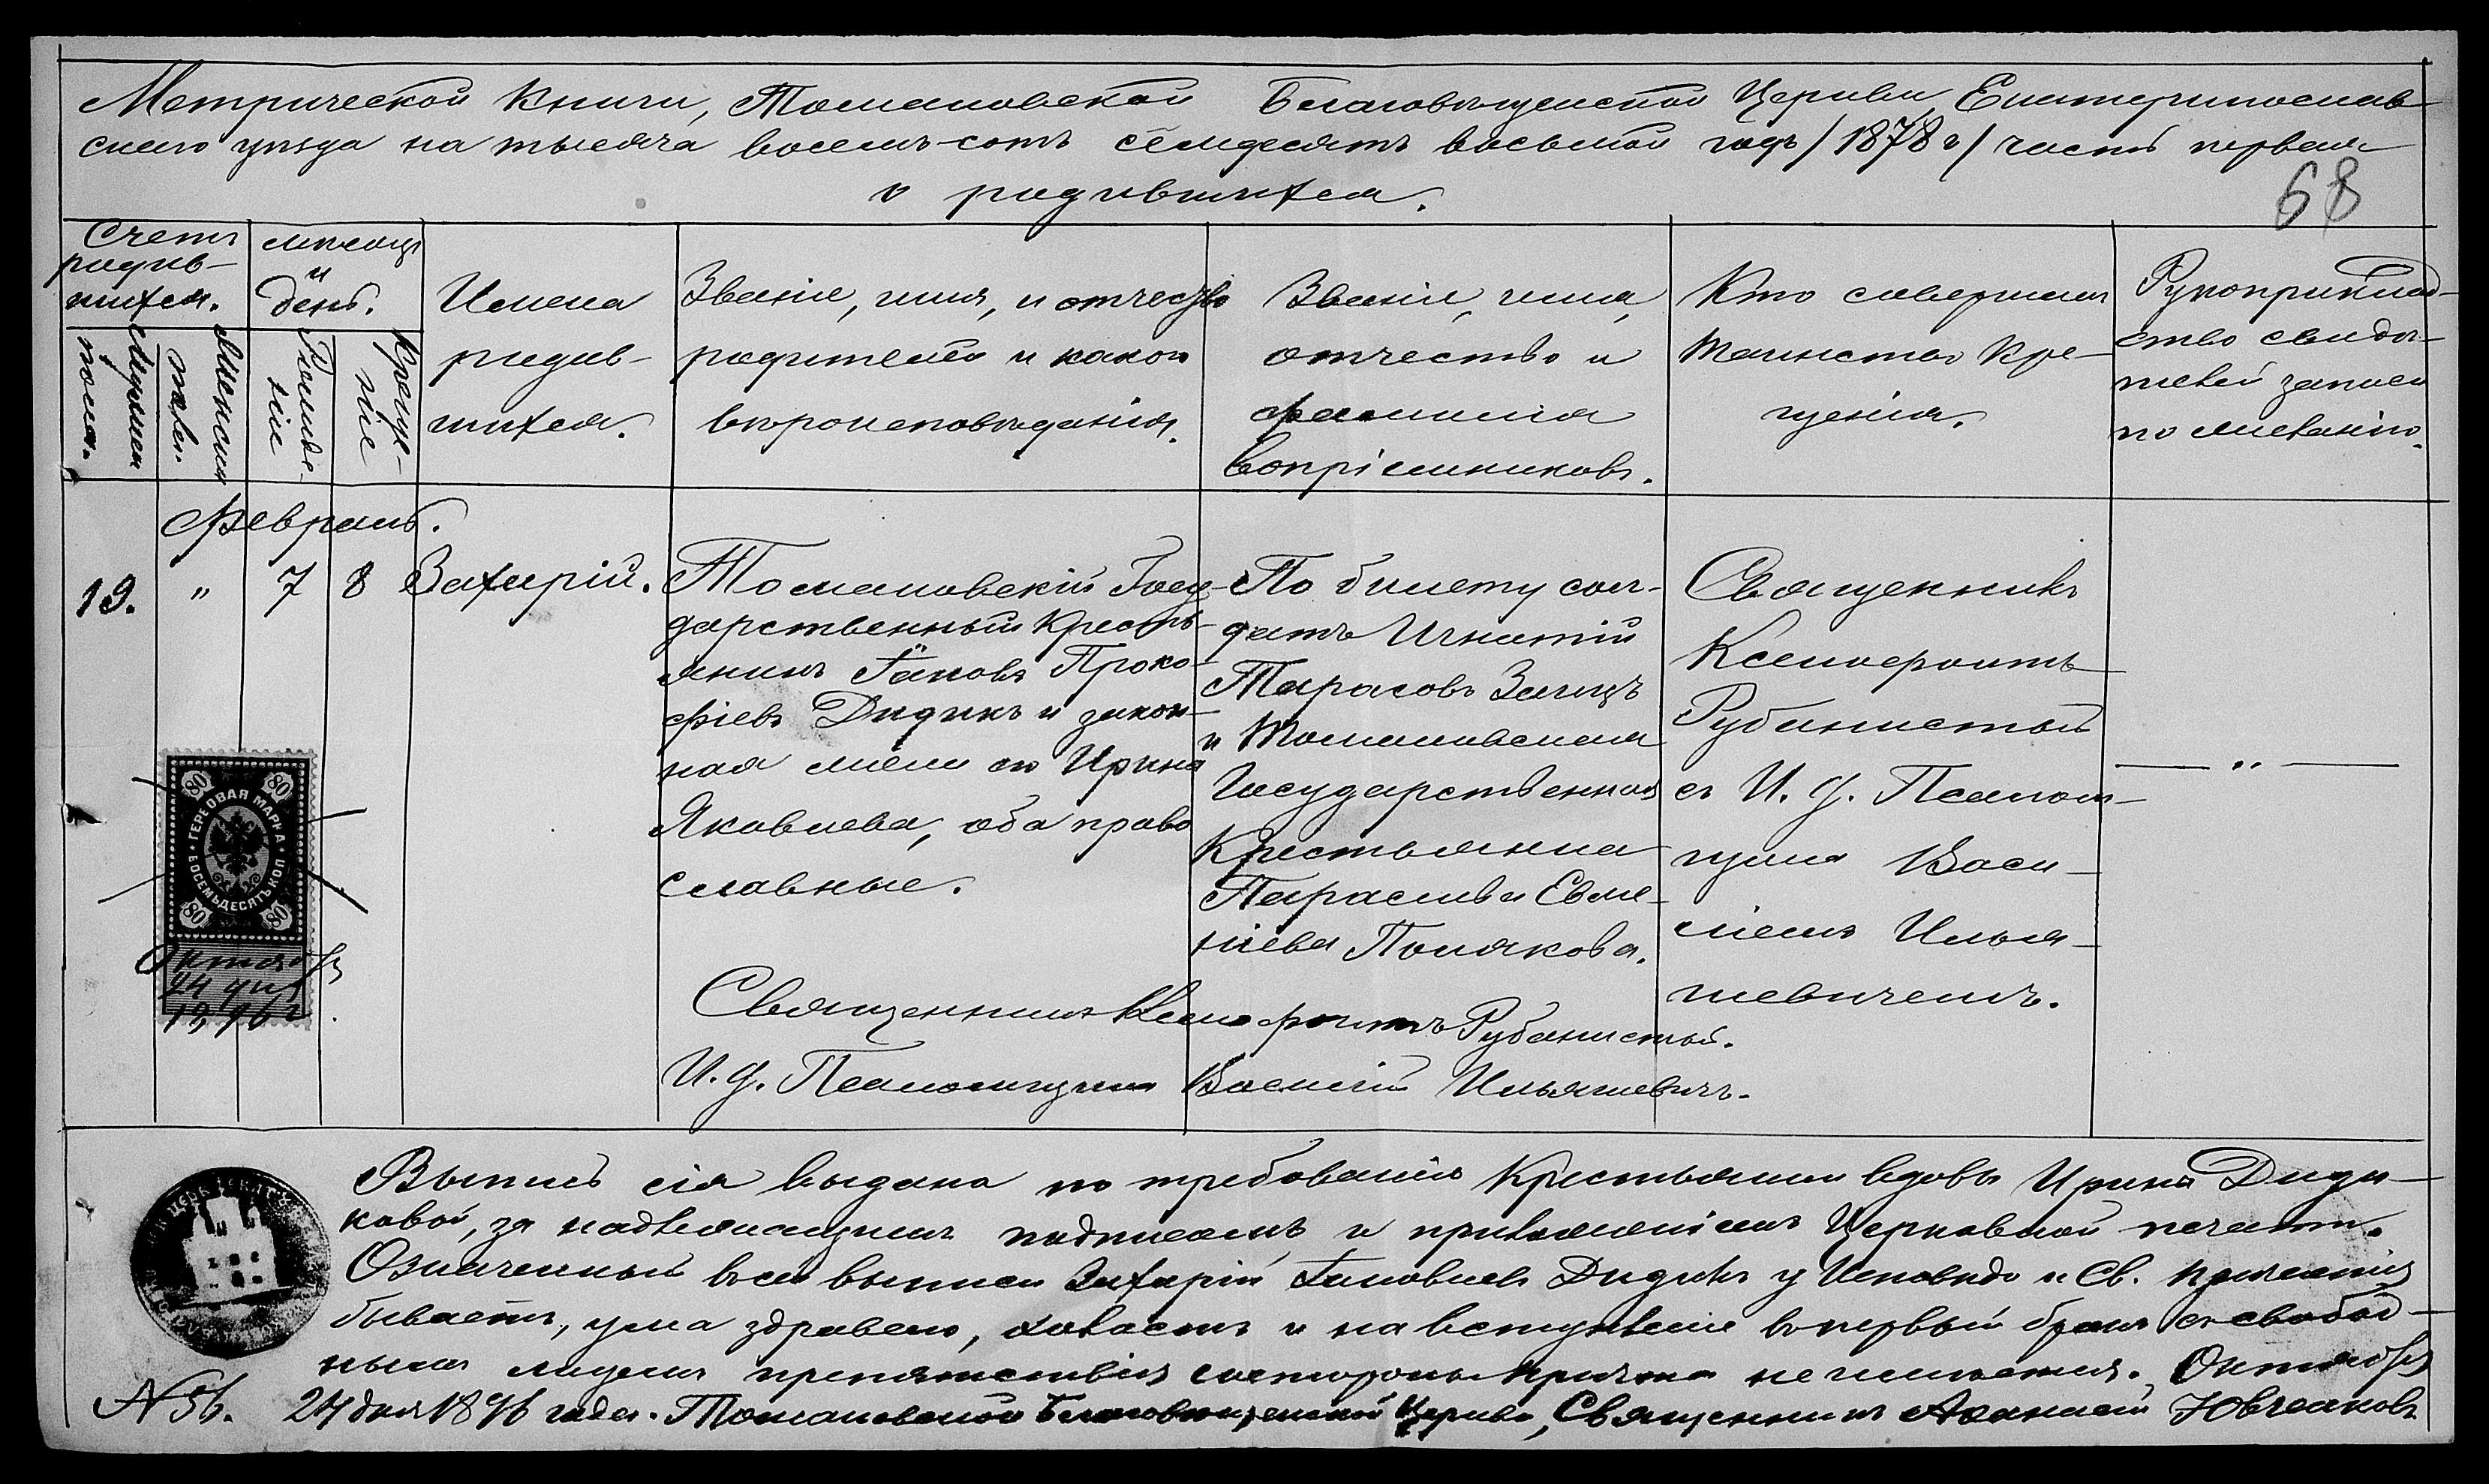 Метрической Книги, Томаковской Благовѣщенской Церкви, Екатеринослав-
скаго уѣзда на тысяча восемь-сотъ семдесятъ восьмой годъ /1878 г/ часть первая
о родившихся.
68
Счетъ
родив-
шихся.
мѣсяцъ
и
день.
Мужеска
пола.
Женска
Рожде-
ніе
Креще-
ніе
Имена
родив-
шихся.
Званіе, имя, и отчество
родителей и какого
вѣроисповѣданія.
Званіе, имя,
отчество и
фамилія
воспріемниковъ.
Кто совершалъ
таинство Кре-
щенія.
Рукоприклад-
ство свидѣ-
телей записи
по желанію.
Февраль.
19. " 7 8 Захарій.
Томаковскій Госу-
дарственный Кресть-
янинъ Іаковъ Проко-
фіевъ Дидикъ и закон-
ная жена его Ирина
Яковлева, оба право
славные.
По билету сол-
датъ Игнатій
Тарасовъ Заецъ
и Томаковская
Государственная
Крестьянка
Параскева Евме-
ніева Полякова.
Священникъ
Ксенофонтъ
Рубанистый
съ И. д. Псалом-
щика Васи-
ліемъ Илья-
шевичемъ.
— „ —
ГЕРБОВАЯ МАРКА
ВОСЕМЬДЕСЯТЪ КОП
80 80
80 80
Октября
24 дня
1896 г.
Священникъ Ксенофонтъ Рубанистый.
И. д. Псаломщика Василій Ильяшевичъ.
Выпись сія выдана по требованію Крестьянки вдовы Ирины Диди-
ковой, за надлежащимъ подписомъ и приложеніемъ Церковной печати.
Означенный въ сей выписи Захарій Іаковлевъ Дидикъ у Исповѣди и Св. Причастія
бываетъ, ума здраваго, холостъ и на вступленіе въ первый бракъ съ свобод-
нымъ лицемъ препятствія со стороны причта не имѣется. Октября
№ 56. 24 дня 1896 года. Томаковской Благовѣщенской Церкви, Священникъ Аѳанасій Ювченковъ